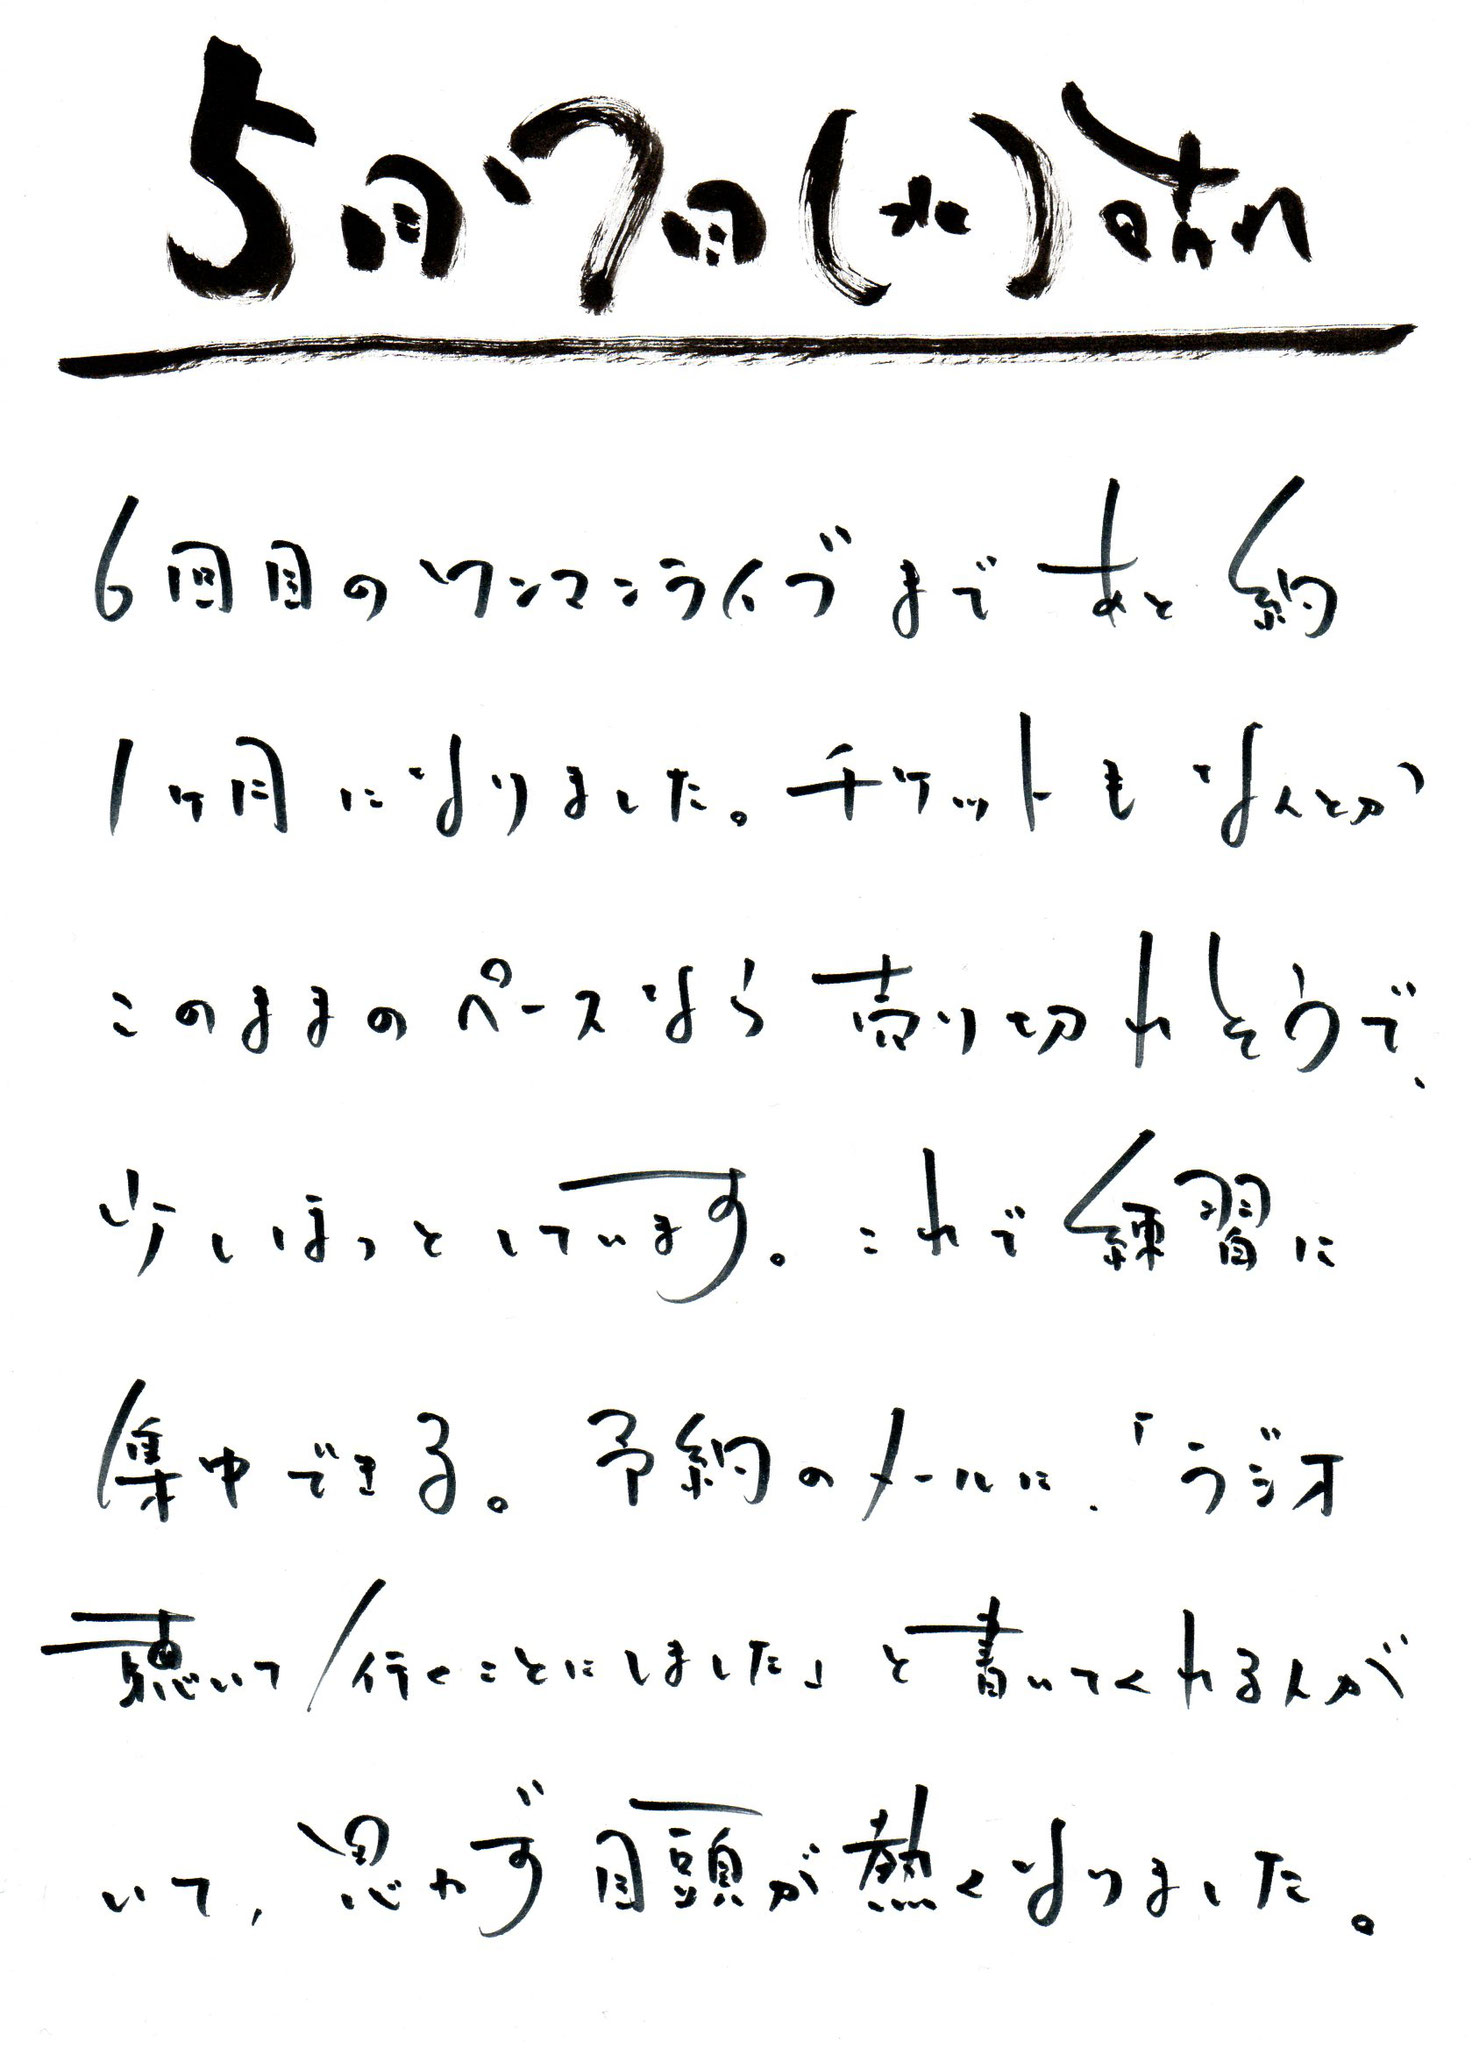 5月7日(水)晴れ
6回目のワンマンライブまであと約
1ヶ月になりました。チケットもなんとか
このままのペースなら売り切れそうで、
少しほっとしています。これで練習に
集中できる。予約のメールに、「ラジオ
聴いて行くことにしました」と書いてくれる人が
いて、思わず目頭が熱くなりました。